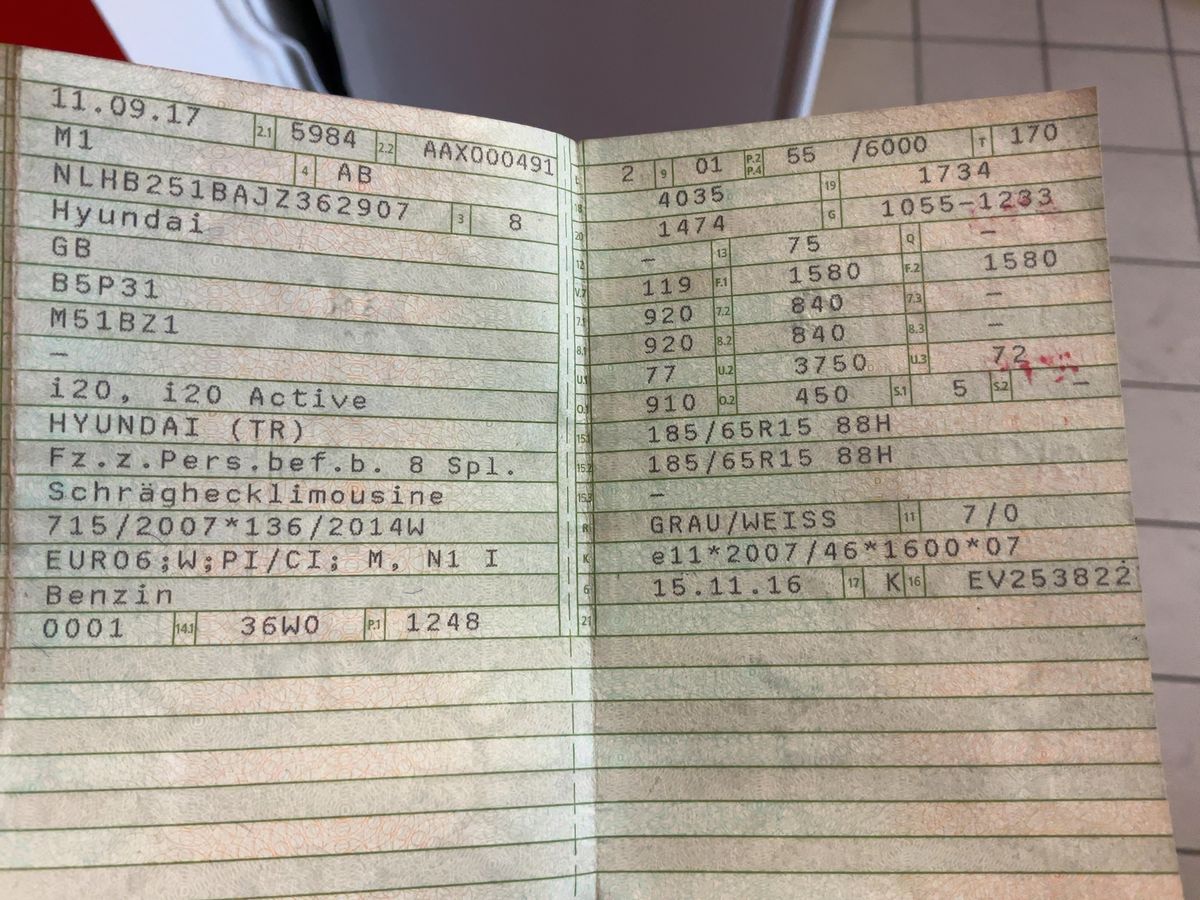 11.09.17 2.1 5984 2.2 AAX000491
M1 4 AB
NLHB251BAJZ362907 3 8
Hyundai
GB
B5P31
M51BZ1
–
i20, i20 Active
HYUNDAI (TR)
Fz.z.Pers.bef.b. 8 Spl.
Schräghecklimousine
715/2007*136/2014W
EURO6;W;PI/CI; M, N1 I
Benzin
0001 14.1 36W0 P.1 1248
L 2 9 01 P.2 P.4 55 /6000 T 170
18 4035 19 1734
20 1474 G 1055-1233
12 – 13 75 Q –
V.7 119 F.1 1580 F.2 1580
7.1 920 7.2 840 7.3 –
8.1 920 8.2 840 8.3 –
U.1 77 U.2 3750 U.3 72
O.1 910 O.2 450 S.1 5 S.2 –
15.1 185/65R15 88H
15.2 185/65R15 88H
15.3 –
R GRAU/WEISS 11 7/0
K e11*2007/46*1600*07
6 15.11.16 17 K 16 EV253822
21